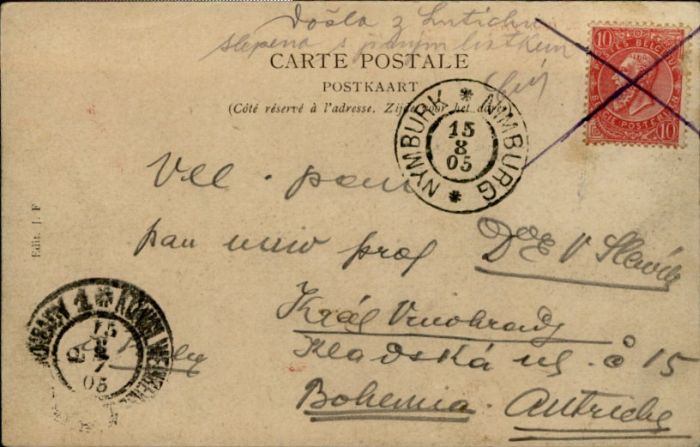 Došla z Lutichu
slepena s jiným lístkem
CARTE POSTALE
POSTKAART
(Côté réservé à l'adresse. Zijde voor het adres
10 10
NYMBURK * NIMBURG *
15
8
05
Vel. pan
pan univ prof Dr E V Slavík
Král Vinohrady
Kladská ul. č 15
Bohemia. Autriche
Edit. J. F
1 * KÖNIGL
15
05